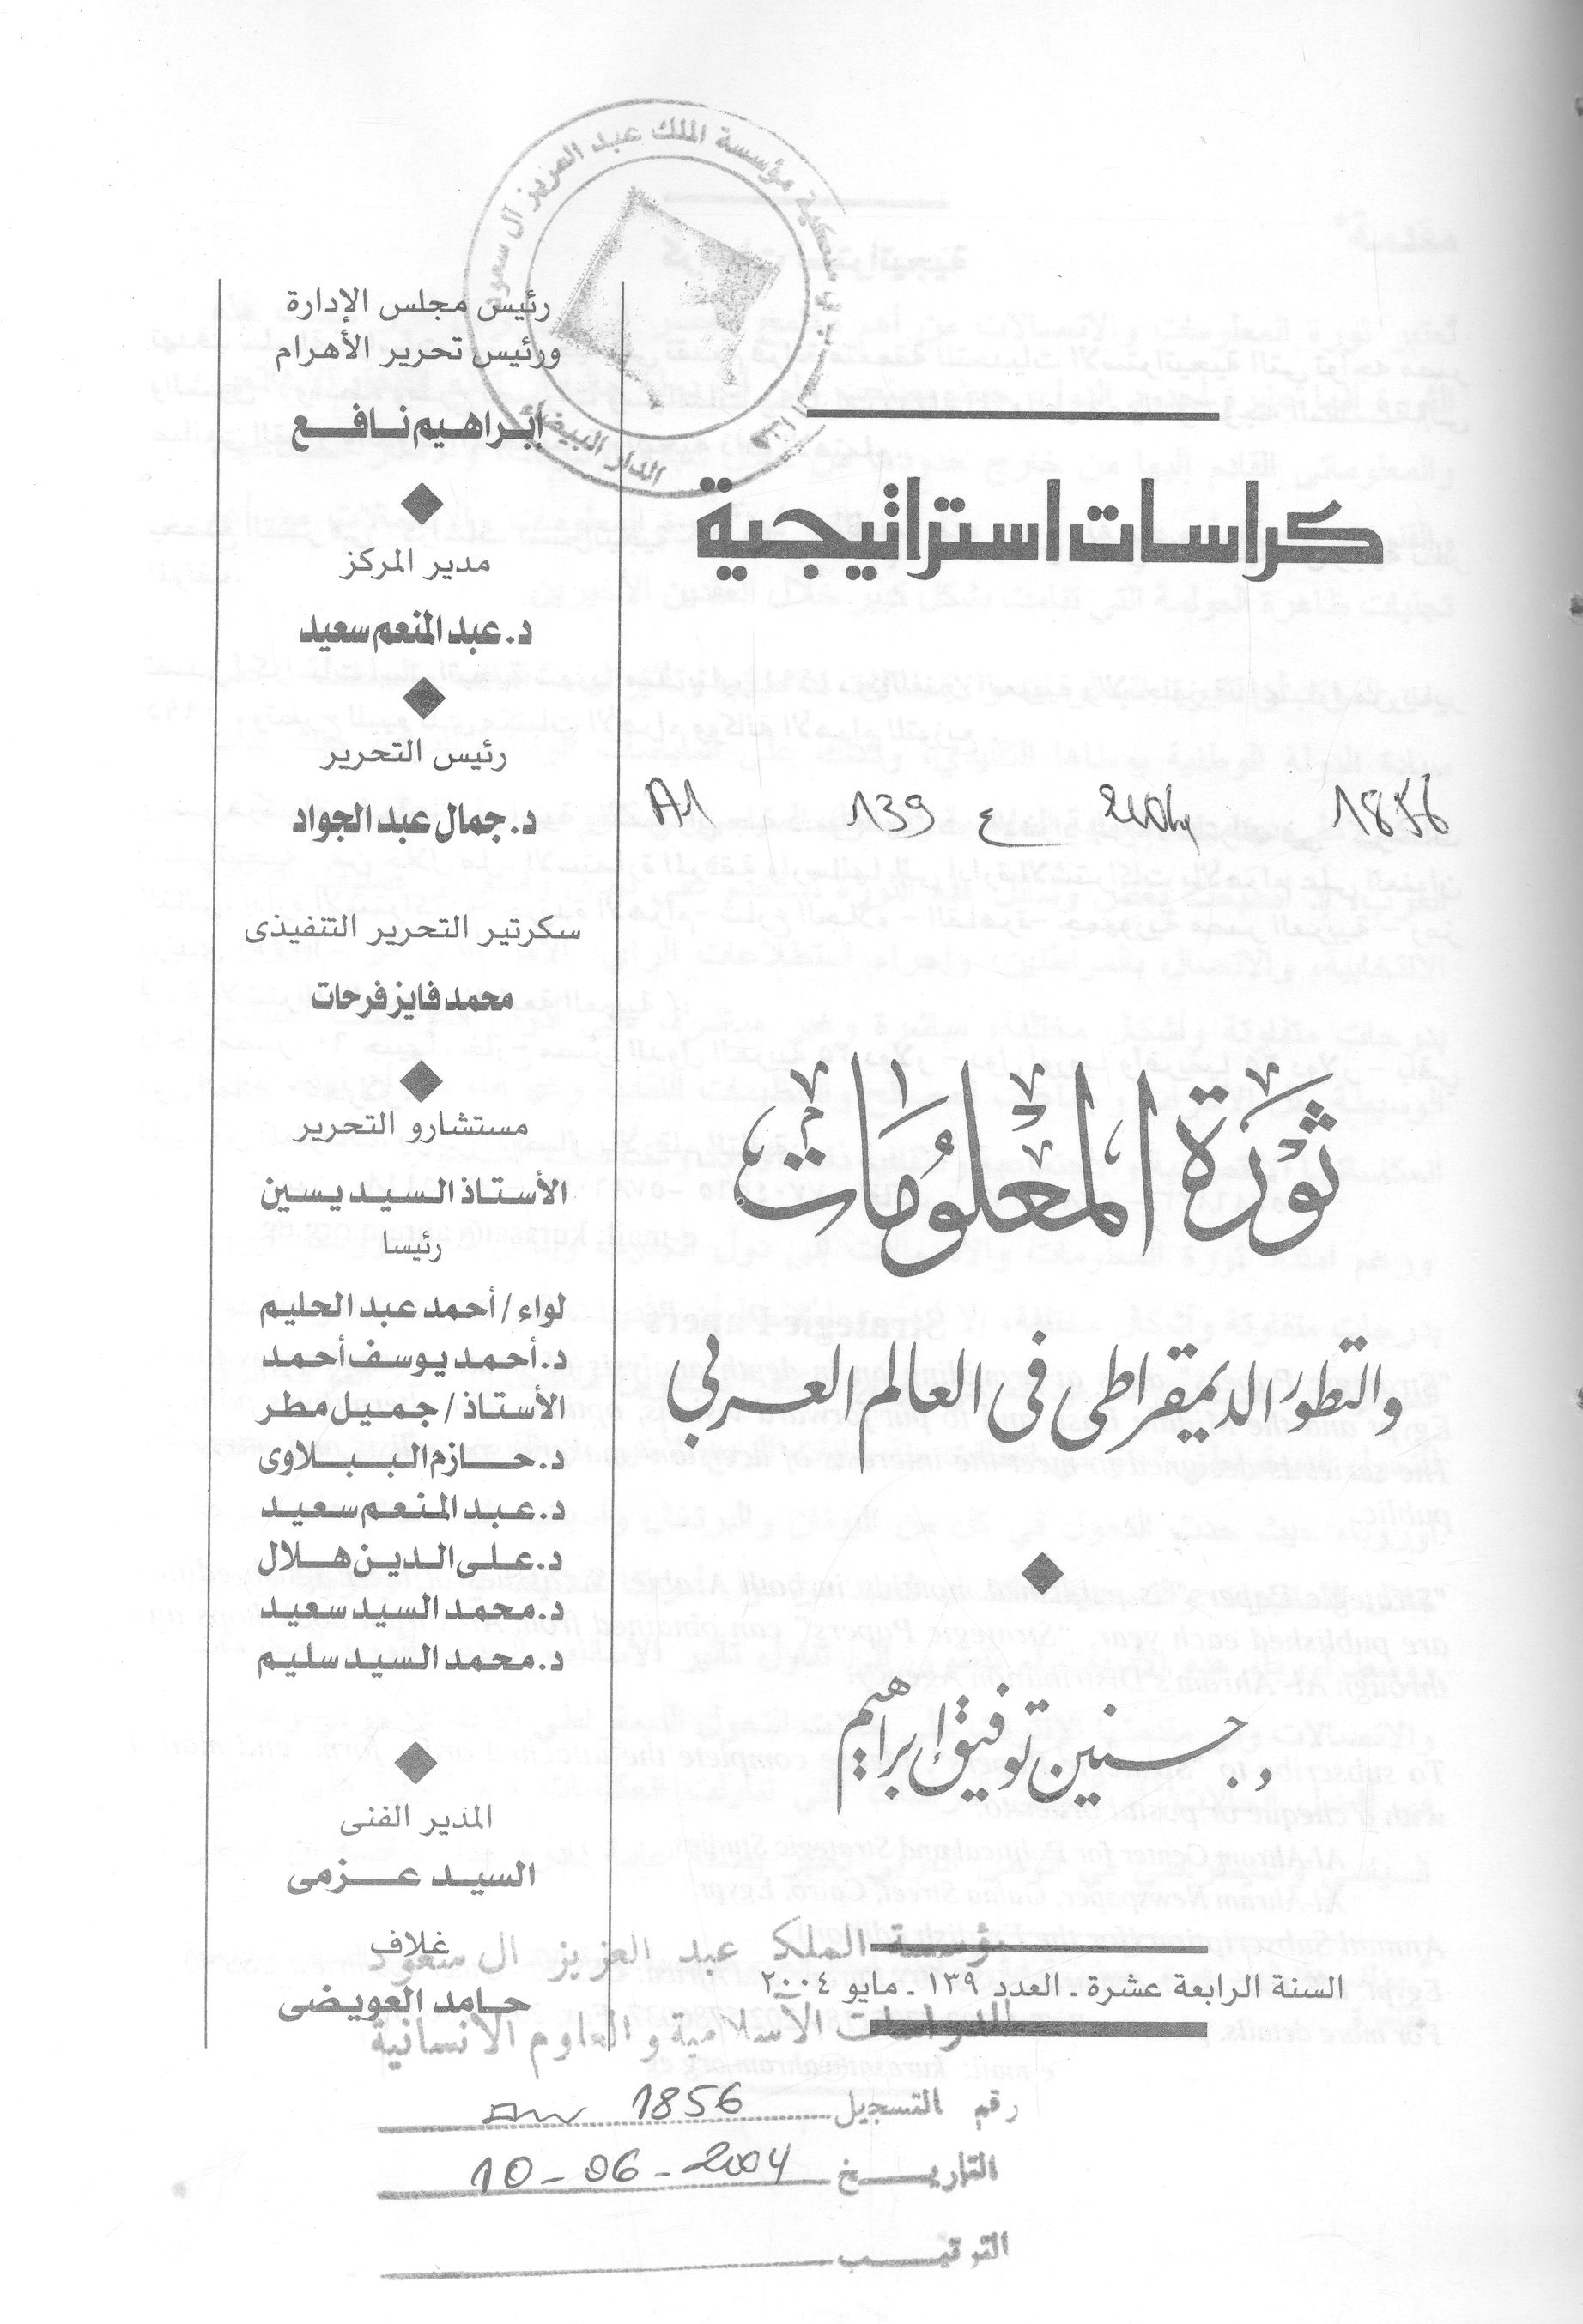 كراسات استراتيجية
1856 2004 ع 139 A1
ثورة المعلومات
والتطور الديمقراطى فى العالم العربي
د. حسنين توفيق إبراهيم
السنة الرابعة عشرة ـ العدد ١٣٩ ـ مايو ٢٠٠٤
رئيس مجلس الإدارة
ورئيس تحرير الأهرام
إبراهيم نافع
مدير المركز
د. عبد المنعم سعيد
رئيس التحرير
د. جمال عبد الجواد
سكرتير التحرير التنفيذى
محمد فايز فرحات
مستشارو التحرير
الأستاذ السيد يسين
رئيسا
لواء / أحمد عبد الحليم
د. أحمد يوسف أحمد
الأستاذ / جميل مطر
د. حازم الببلاوى
د. عبد المنعم سعيد
د. على الدين هلال
د. محمد السيد سعيد
د. محمد السيد سليم
المدير الفنى
السيد عزمى
غلاف
حامد العويضى
مؤسسة الملك عبد العزيز آل سعود
الدار البيضاء
مؤسسة الملك عبد العزيز ال سعود
للدراسات الاسلامية و العلوم الانسانية
رقم التسجيل 1856
التاريخ 10-06-2004
الترتيب